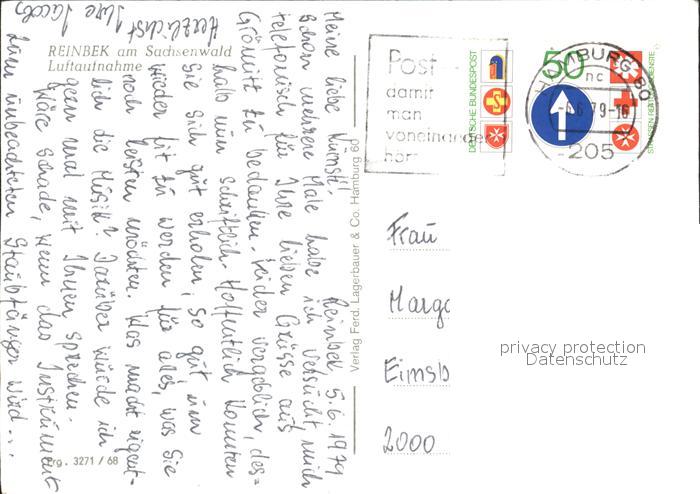 REINBEK am Sachsenwald
Luftaufnahme
Reinbek 5.6.1979
Meine liebe
Schon mehrere Male habe ich versucht, mich
telefonisch für Ihre lieben Grüsse aus
Grömitz zu bedanken. Leider vergeblich, des=
halb nun schriftlich. Hoffentlich konnten
Sie sich gut erholen, so gut, um
wieder fit zu werden für alles, was Sie
noch leisten möchten. Was macht eigent-
lich die Musik? Darüber würde ich
gern mal mit Ihnen sprechen.
Wäre schade, wenn das Instrument
zum unbeachteten Staubfänger wird...
Herzlichst Ihre Jacobs
Prg. 3271/68
Verlag Ferd. Lagerbauer & Co. Hamburg 60
Post -
damit
man
voneinander
hört
DEUTSCHE BUNDESPOST
50
HAMBURG 80
nc
-6.6.79-16
205
Frau
Marg
Eimsb
2000
privacy protection
Datenschutz